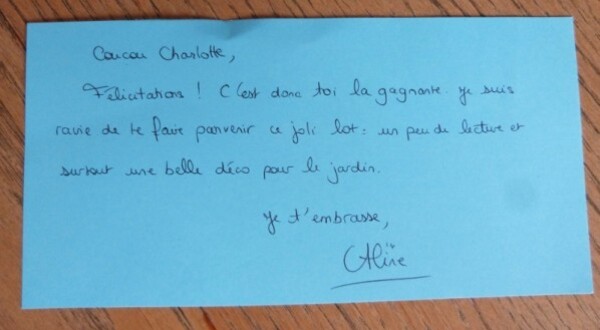 Coucou Charlotte,
Félicitations ! C'est donc toi la gagnante. Je suis
ravie de te faire parvenir ce joli lot : un peu de lecture et
surtout une belle déco pour le jardin.
Je t'embrasse,
Aline